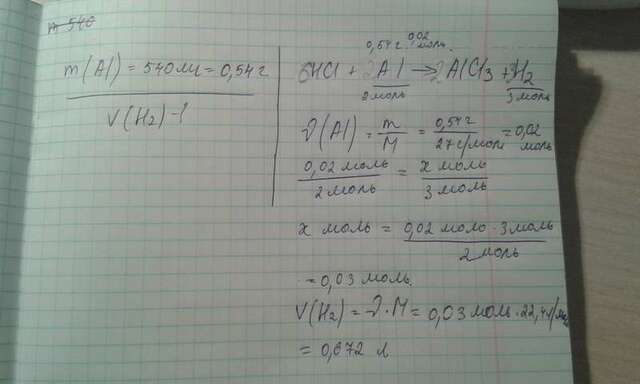 m 540
m(Al) = 540 мг = 0,54 г
V(H2) - ?
0,54 г 0,02 моль.
6HCl + 2Al → 2AlCl3 + 3H2
2 моль 3 моль
ν(Al) = m/M = 0,54 г / 27 г/моль = 0,02 моль
0,02 моль / 2 моль = x моль / 3 моль
x моль = 0,02 моль · 3 моль / 2 моль
= 0,03 моль.
V(H2) = ν · M = 0,03 моль · 22,4 л/моль
= 0,672 л